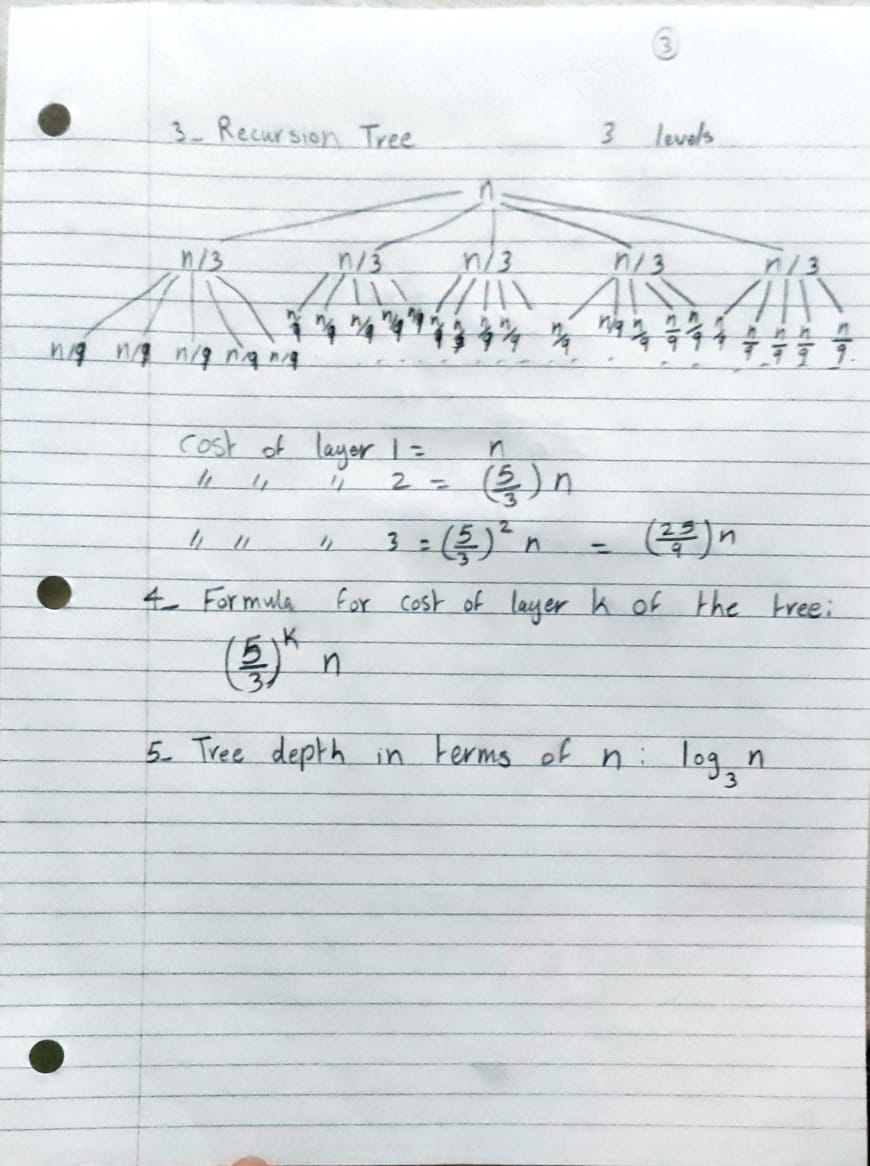 3
3- Recursion Tree 3 levels
n
n/3 n/3 n/3 n/3 n/3
n/9 n/9 n/9 n/9 n/9 n/9 n/9 n/9 n/9 n/9 n/9 n/9 n/9 n/9 n/9 n/9 n/9 n/9 n/9 n/9 n/9 n/9 n/9 n/9
cost of layer 1 = n
" " " 2 = (5/3) n
" " " 3 = (5/3)² n = (25/9) n
4- Formula for cost of layer k of the tree:
(5/3)^k n
5- Tree depth in terms of n : log₃ n